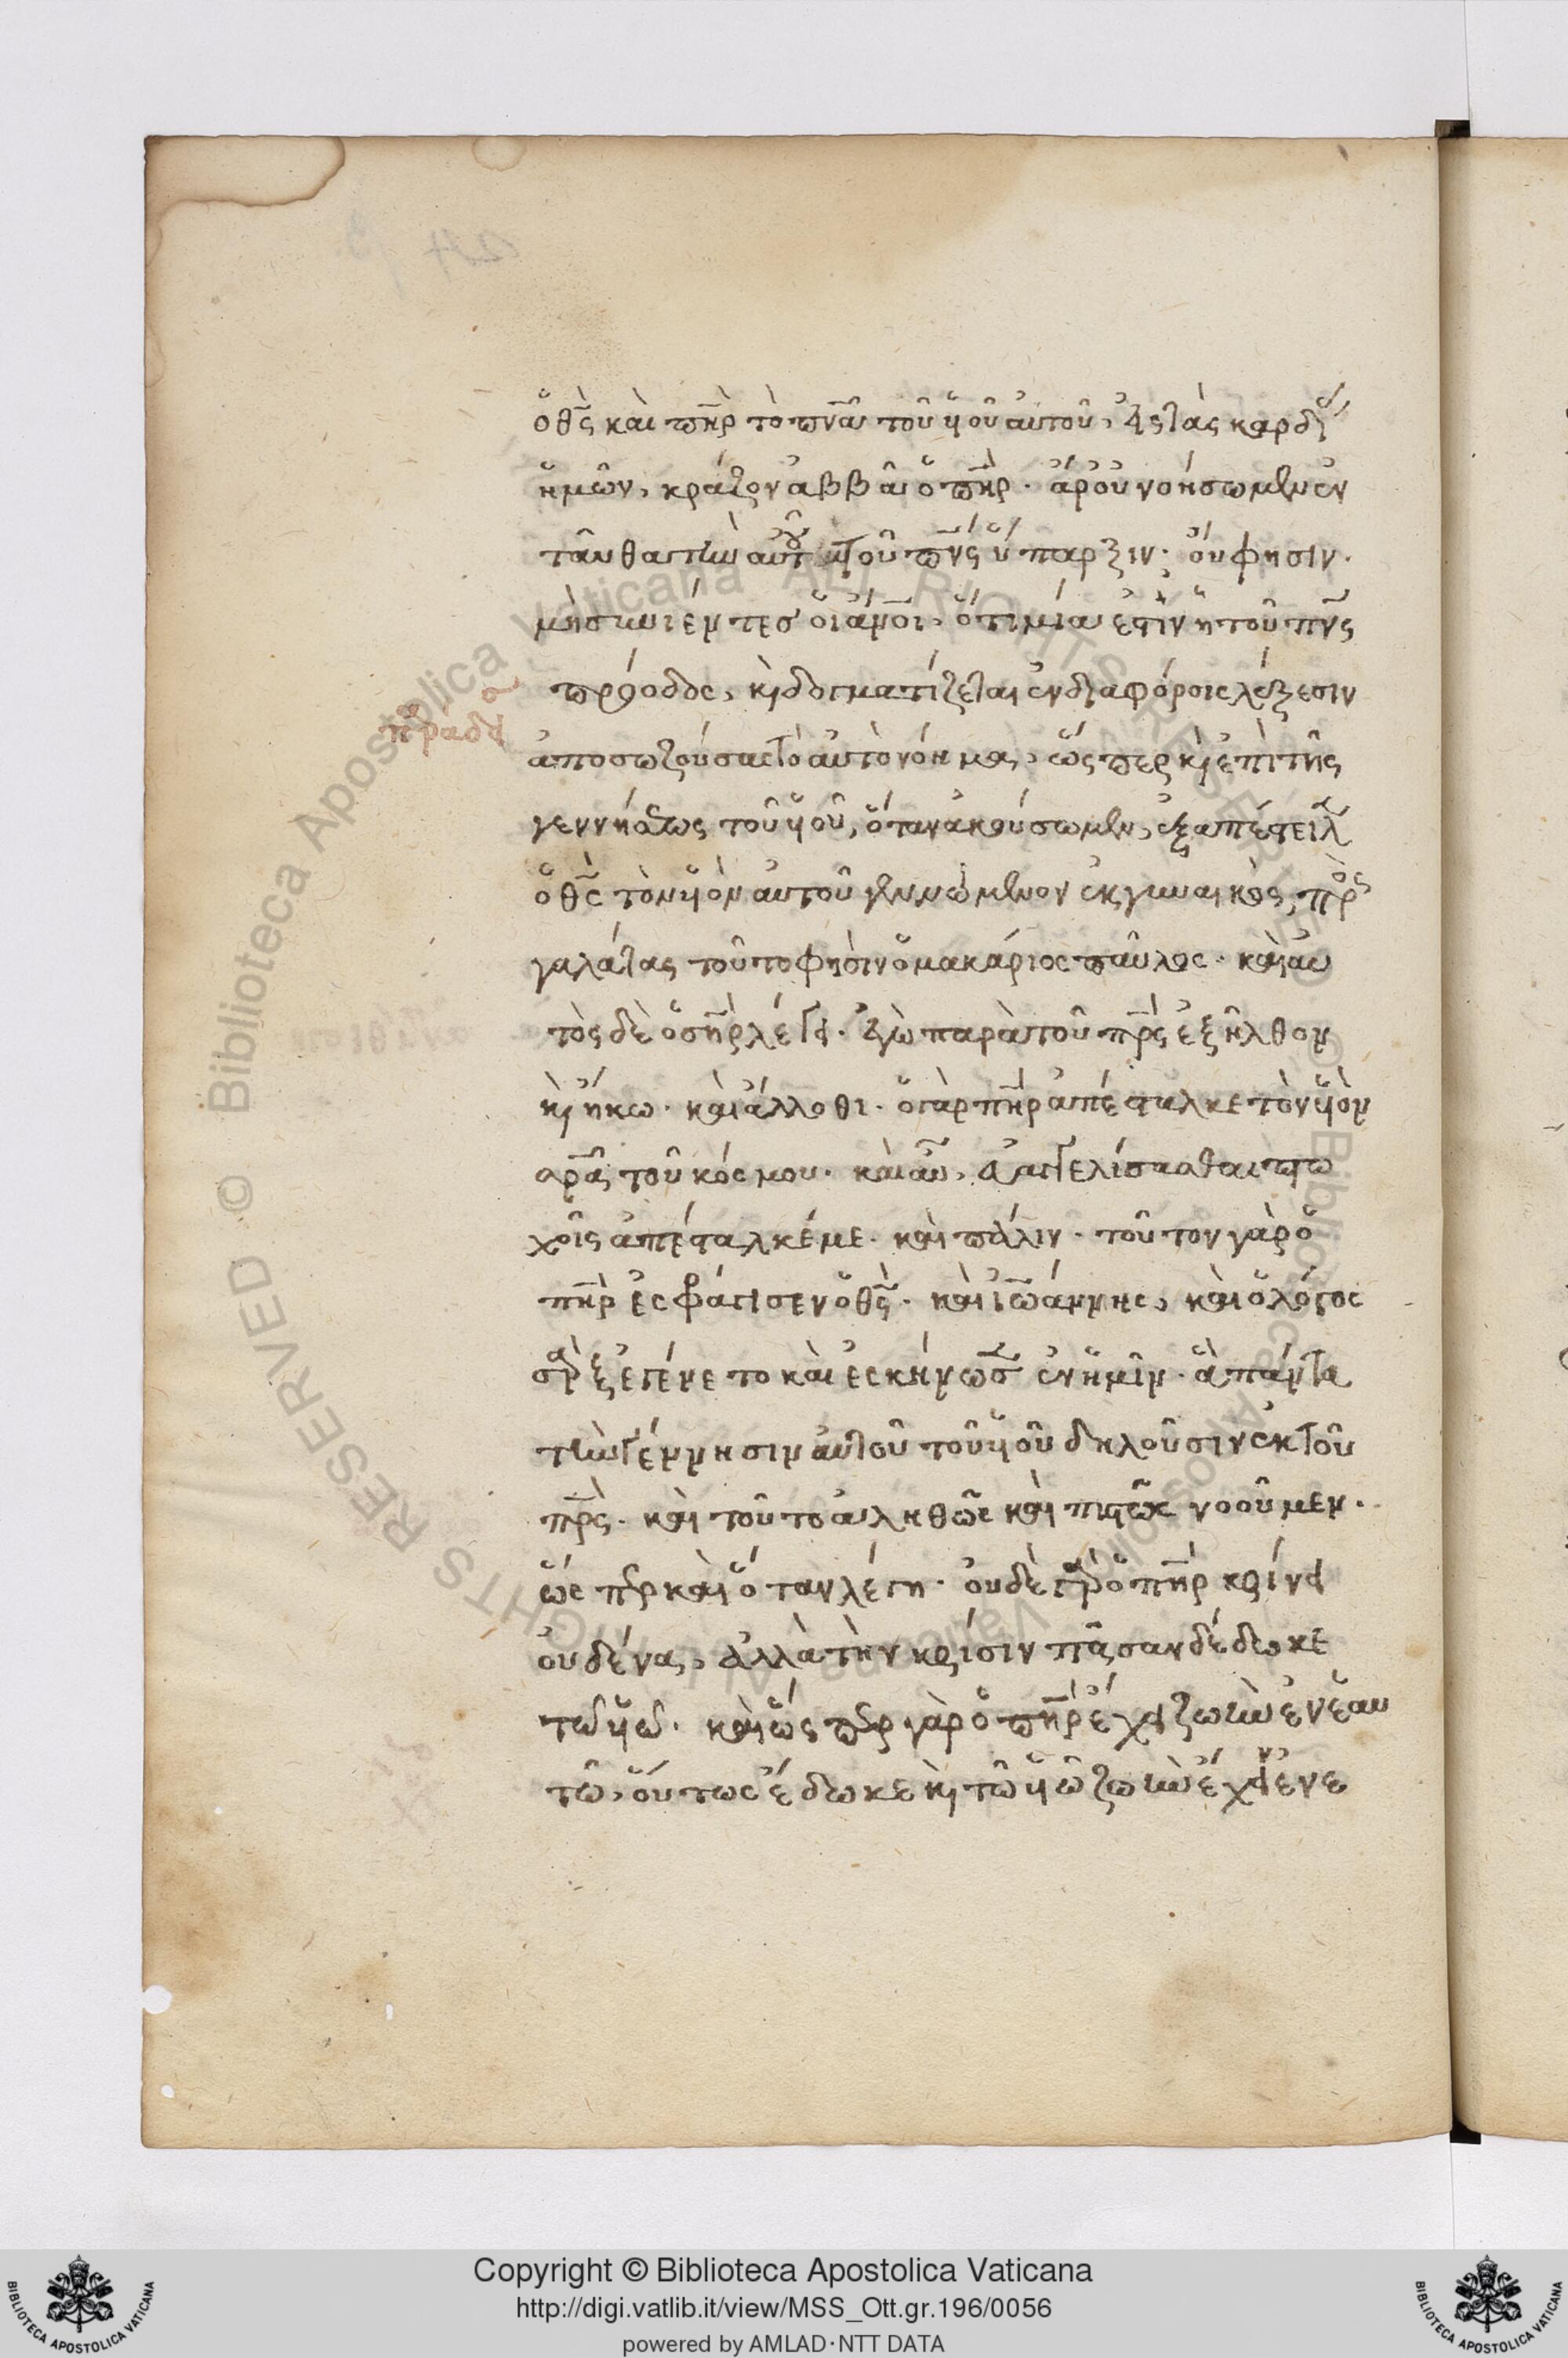 ὁ θς̅ καὶ πηρ̅ τὸ πνα̅ τοῦ υἱοῦ αὐτοῦ, εἰς τὰς καρδί
ἡμῶν, κράζον ἀββᾶ ὁ πηρ̅. ἆρ' οὖν νοήσωμεν ἐν
ταῦθα τὴν αὐτὴν τοῦ πνς̅ ὕπαρξιν; οὔ φησιν.
μὴ συνιέντες οἱ ἄνοι̅, ὅτι μία ἐστὶν ἡ τοῦ πνς̅
πρόοδος, κὶ δογματίζεται ἐν διαφόροις λέξεσιν
ἀποσωζούσαις τὸ αὐτὸ νόημα, ὥσπερ κὶ ἐπὶ τῆς
γεννήσεως τοῦ υἱοῦ, ὅταν ἀκούσωμεν, ἐξαπέστειλ
ὁ θς̅ τὸν υἱὸν αὐτοῦ γεννώμενον ἐκ γυναικὸς, πρὸς
γαλάτας τοῦτο φησὶν ὁ μακάριος παῦλος. καὶ αὐ
τὸς δὲ ὁ σηρ̅ λέγει. ἐγὼ παρὰ τοῦ πρς̅ ἐξῆλθον
κὶ ἥκω. καὶ ἄλλοθι. ὁ γὰρ πηρ̅ ἀπέσταλκε τὸν υἱὸν
σρα̅ τοῦ κόσμου. καὶ αὖ, εὐαγγελίσασθαι πτω
χοῖς ἀπέσταλκέ με. καὶ πάλιν. τοῦτον γὰρ ὁ
πηρ̅ ἐσφράγισεν ὁ θς̅. καὶ ἰωάννης, καὶ ὁ λόγος
σὰρξ ἐγένετο καὶ ἐσκήνωσ ἐν ἡμῖν. ἃ πάντα
τὴν γέννησιν αὐτοῦ τοῦ υἱοῦ δηλοῦσιν ἐκ τοῦ
πρς̅. καὶ τοῦτο ἀληθῶς καὶ πιστῶς νοοῦμεν.
ὥσπερ καὶ ὅταν λέγη. οὐδὲ γὰρ ὁ πηρ̅ κρίνει
οὐδένα, ἀλλὰ τὴν κρίσιν πᾶσαν δέδωκε
τῶ υἱῶ. καὶ ὥσπερ γὰρ ὁ πηρ̅ ἔχει ζωὴν ἐν ἑαυ
τῶ, οὕτως ἔδωκε κὶ τῶ υἱῶ ζωὴν ἔχειν ἐν ἑ
Copyright © Biblioteca Apostolica Vaticana
http://digi.vatlib.it/view/MSS_Ott.gr.196/0056
powered by AMLAD·NTT DATA